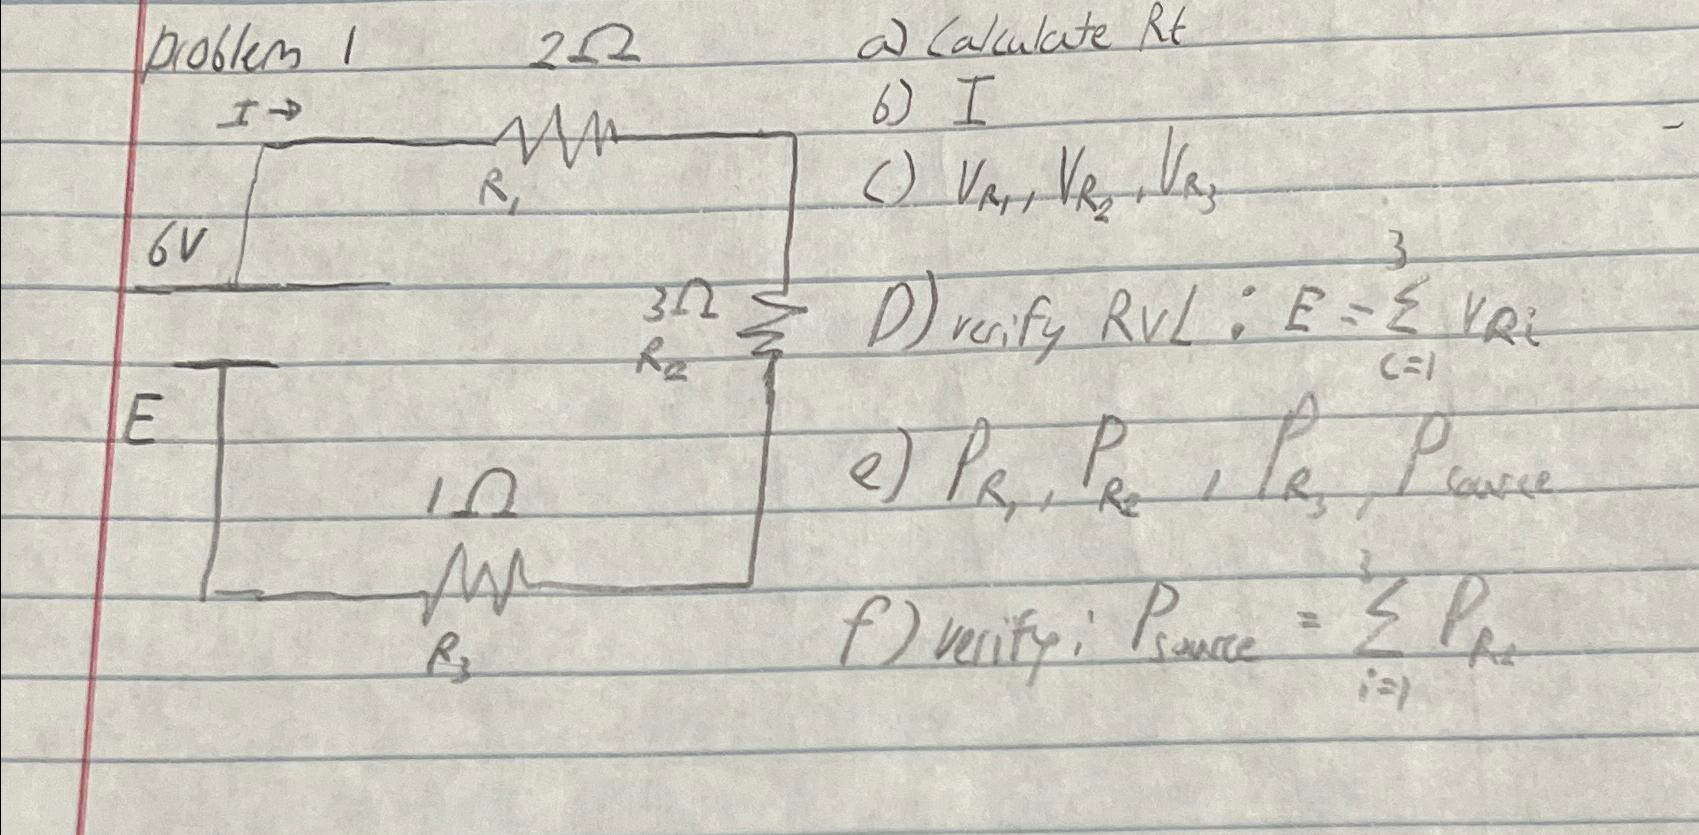 problem 1
2Ω
I →
R₁
6V
3Ω
R₂
E
1Ω
R₃
a) Calculate Rt
b) I
c) V_R₁, V_R₂, V_R₃
D) verify RVL : E = 3 Σ i=1 V_Ri
e) P_R₁, P_R₂, P_R₃, P_source
f) verify: P_source = 3 Σ i=1 P_Ri